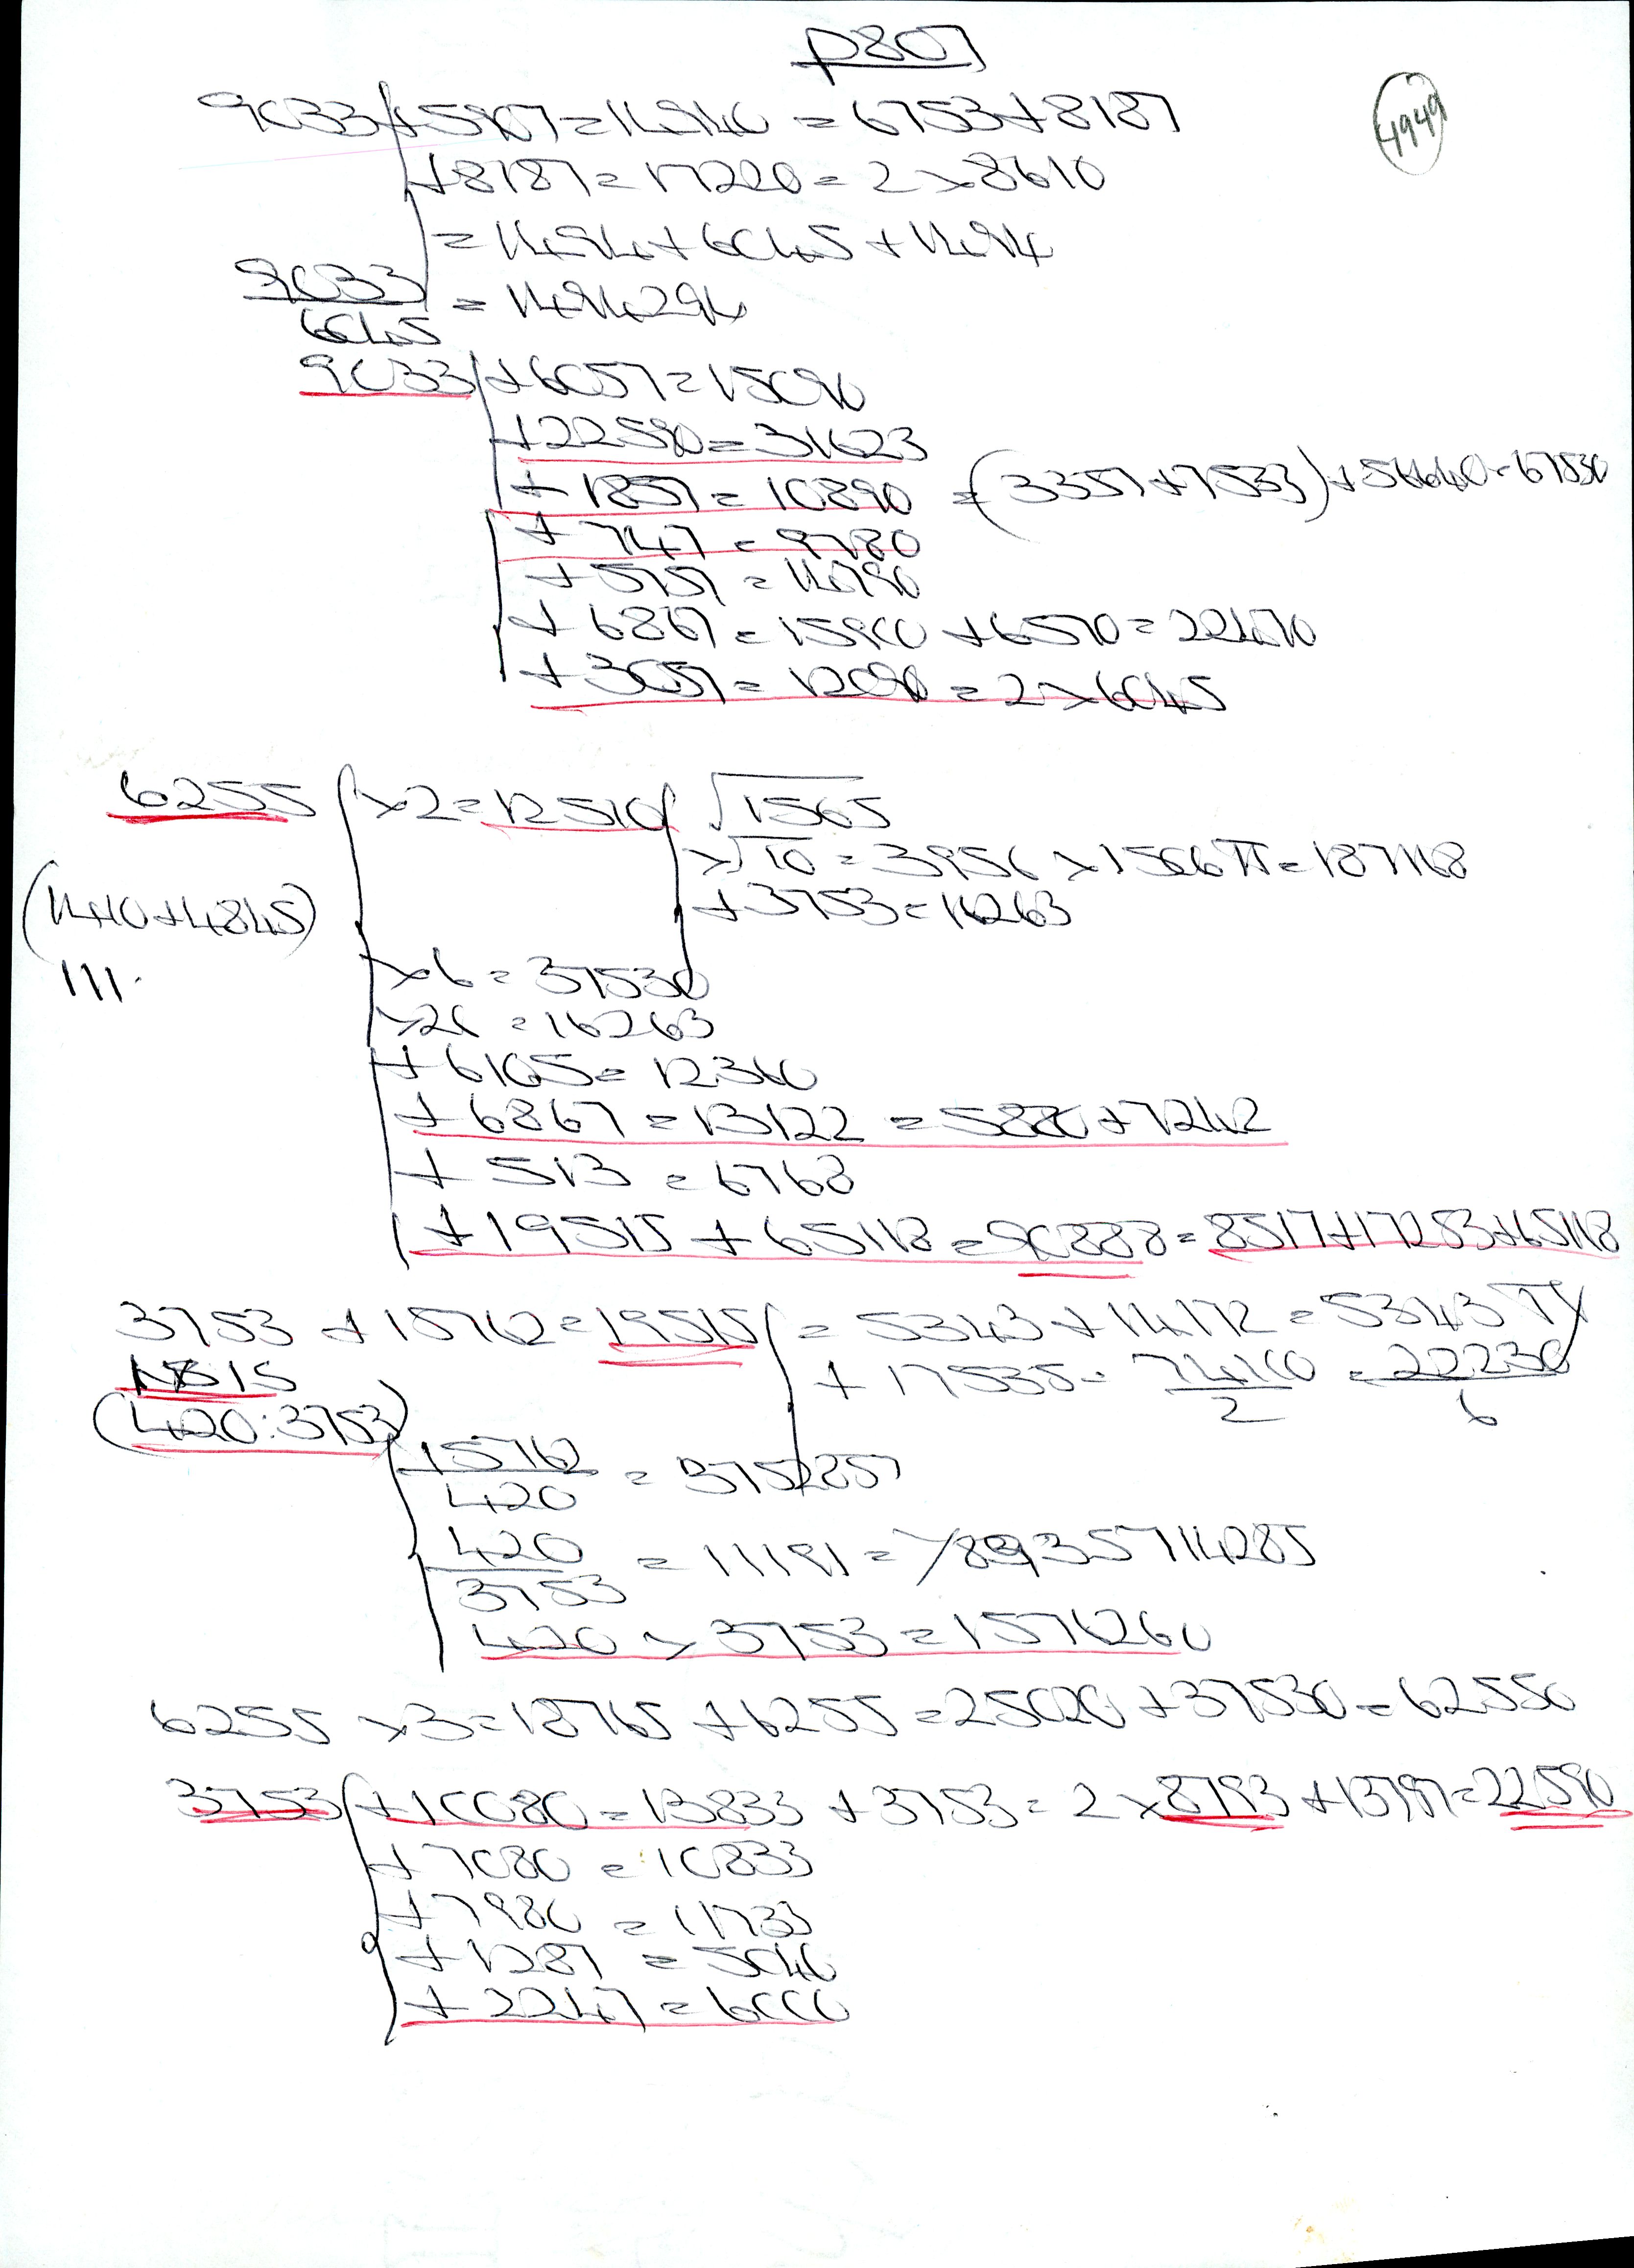 p807
4949
9033 + 5907 = 14940 = 6753 + 8187
+ 8187 = 17220 = 2 × 8610
= 1494 + 6045 + 1494
9033/6045 = 1494294
9033 + 6057 = 15090
+ 22590 = 31623
+ 1857 = 10890 = (3357 + 7533) + 56640 = 67530
+ 747 = 9780
+ 5757 = 14790
+ 6867 = 15900 + 6570 = 22470
+ 3057 = 12090 = 2 × 6045
6255 × 2 = 12510 √1565
× √10 = 3956 × 1506 π = 187168
(1410 + 4845) + 3753 = 16263
111.
× 6 = 37530
× 26 = 16263
+ 6105 = 12360
+ 6867 = 13122 = 5880 + 7242
+ 513 = 6768
+ 19515 + 65118 = 90888 = 8517 + 17253 + 65118
3753 + 15762 = 19515 = 5343 + 14172 = 5343 π
+ 17535 = 74100/2 = 22230/6
(420:3753)
15762/420 = 3752857
420/3753 = 11191 = 1/8935714285
420 × 3753 = 1576260
6255 × 3 = 18765 + 6255 = 25020 + 37530 = 62550
3753 + 10080 = 13833 + 3753 = 2 × 8793 + 13797 = 22590
+ 7080 = 10833
+ 7980 = 11733
+ 1287 = 5040
+ 2247 = 6000